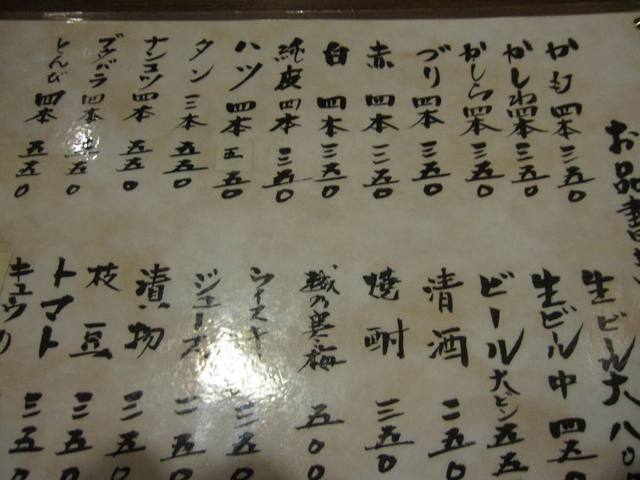 お品書き
かも 四本 三五〇
かしわ 四本 三五〇
かしら 四本 三五〇
づり 四本 三五〇
赤 四本 三五〇
白 四本 三五〇
純皮 四本 三五〇
ハツ 四本 五五〇
タン 三本 五五〇
ナンコツ 四本 五五〇
ブタバラ 四本 五五〇
とんび 四本 五五〇
生ビール大 八〇
生ビール中 四五
ビール大ビン 五五
清酒 二五〇
焼酎 三五〇
越の寒梅 五〇〇
ウイスキー 三五〇
ジュース 二五〇
漬物 三五〇
枝豆 三五〇
トマト 三五〇
キュウリ 三五〇